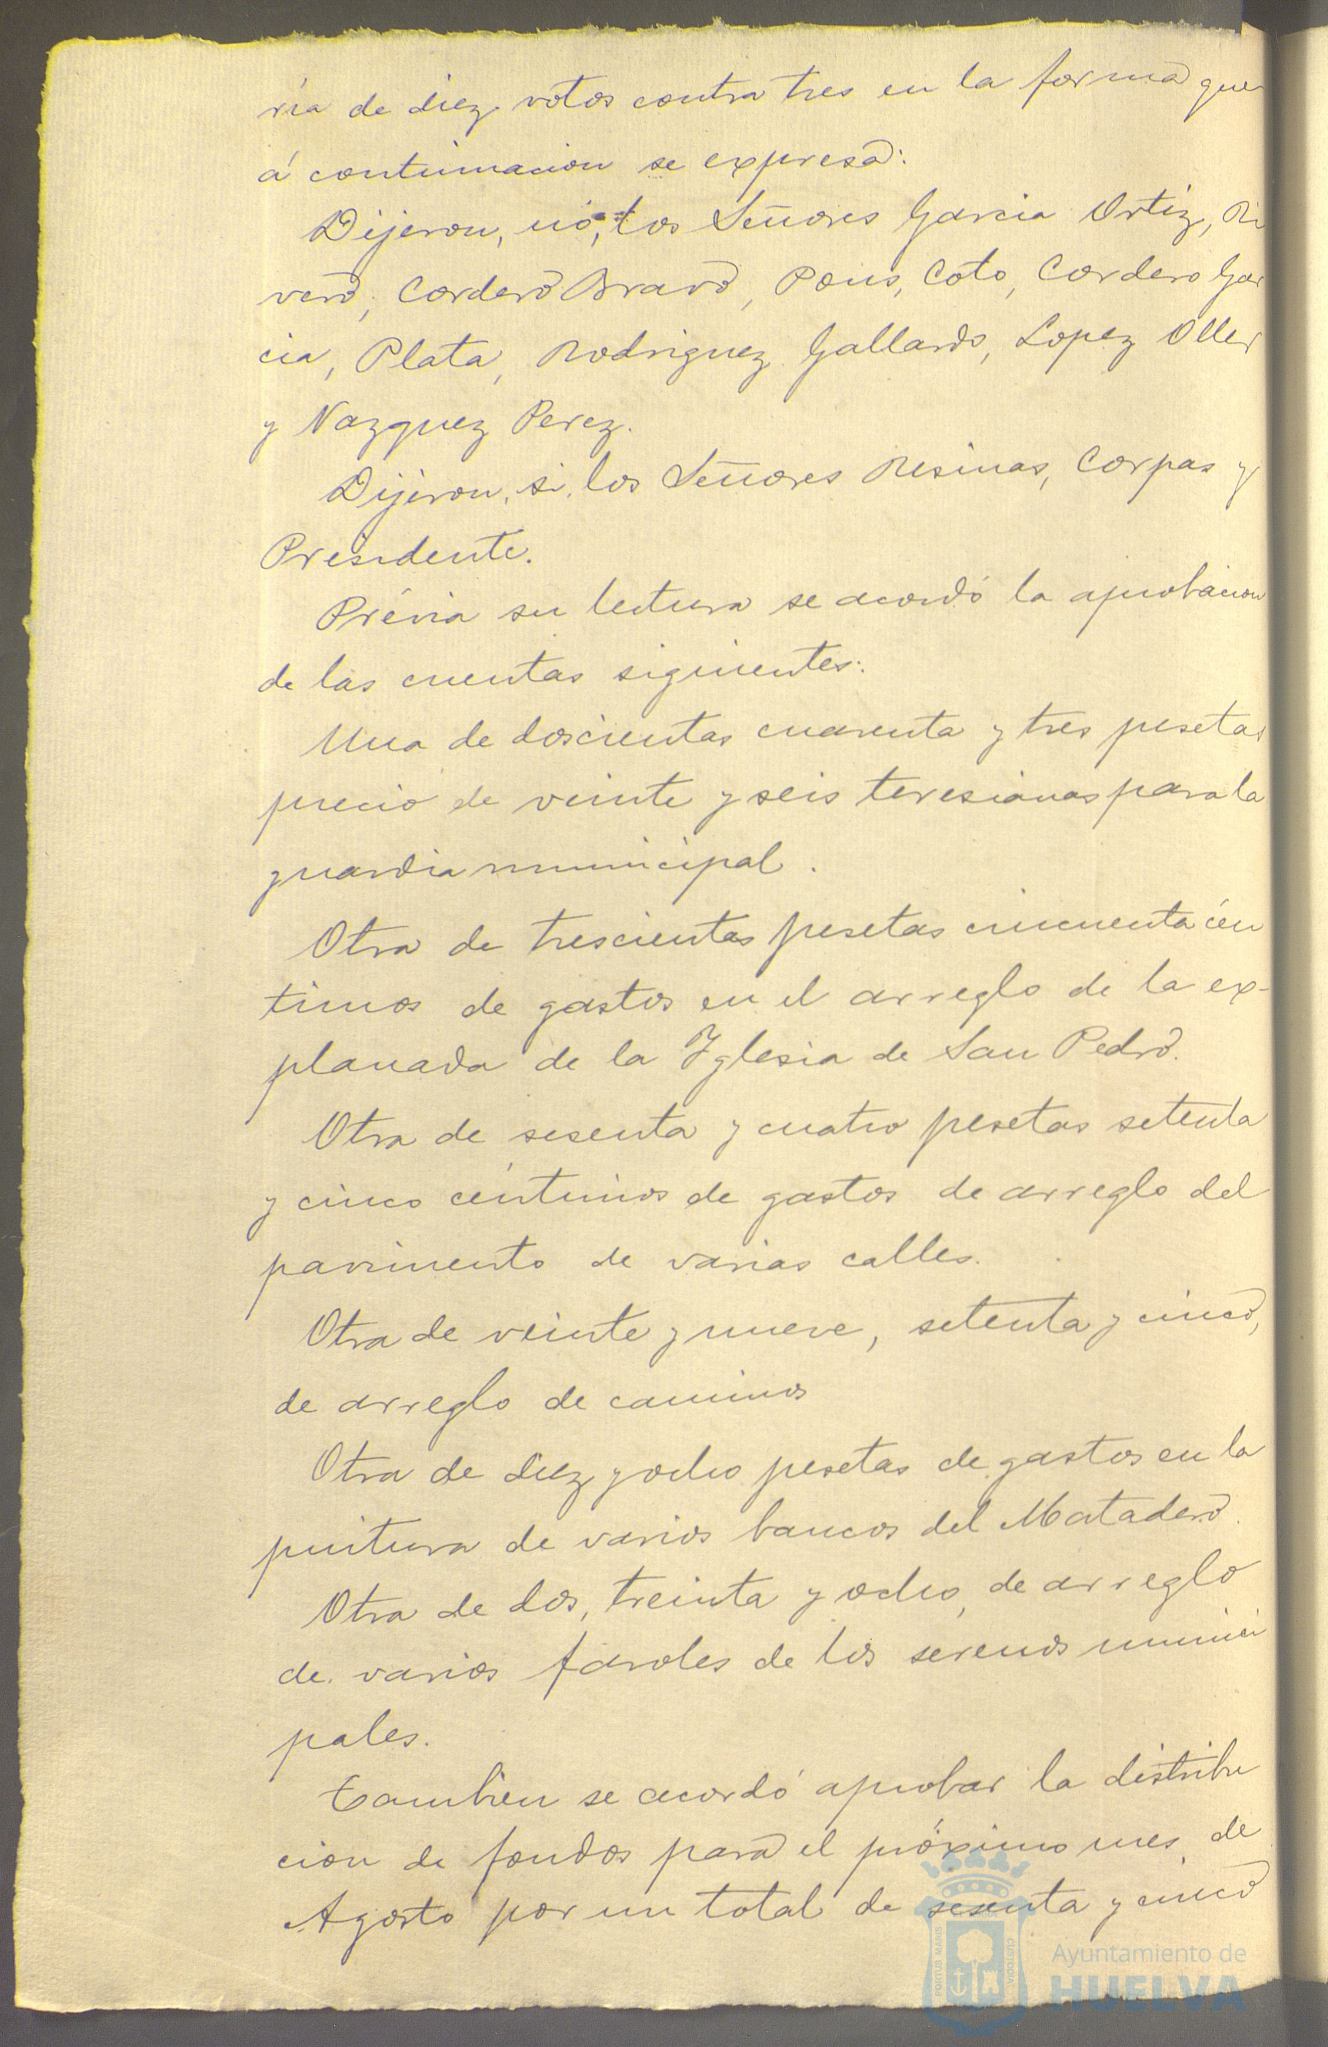 ría de diez votos contra tres en la forma que
á continuacion se expresa:
Dijeron, nó, los Señores Garcia Ortiz, Ri
vero, Cordero Bravo, Pons, Coto, Cordero Gar
cia, Plata, Rodriguez Gallardo, Lopez Oller
y Vazquez Perez.
Dijeron, si, los Señores Resinas, Corpas y
Presidente.
Prévia su lectura se acordó la aprobacion
de las cuentas siguientes:
Una de doscientas cuarenta y tres pesetas
precio de veinte y seis teresianas para la
guardia municipal.
Otra de trescientas pesetas cincuenta cén
timos de gastos en el arreglo de la ex-
planada de la Iglesia de San Pedro.
Otra de sesenta y cuatro pesetas setenta
y cinco céntimos de gastos de arreglo del
pavimento de varias calles.
Otra de veinte y nueve, setenta y cinco,
de arreglo de caminos
Otra de diez y ocho pesetas de gastos en la
pintura de varios bancos del Matadero.
Otra de dos, treinta y ocho, de arreglo
de varios faroles de los serenos munici
pales.
Tambien se acordó aprobar la distribu
cion de fondos para el próximo mes de
Agosto por un total de sesenta y cinco
PORTUS MARIS CUSTODIA
Ayuntamiento de
HUELVA